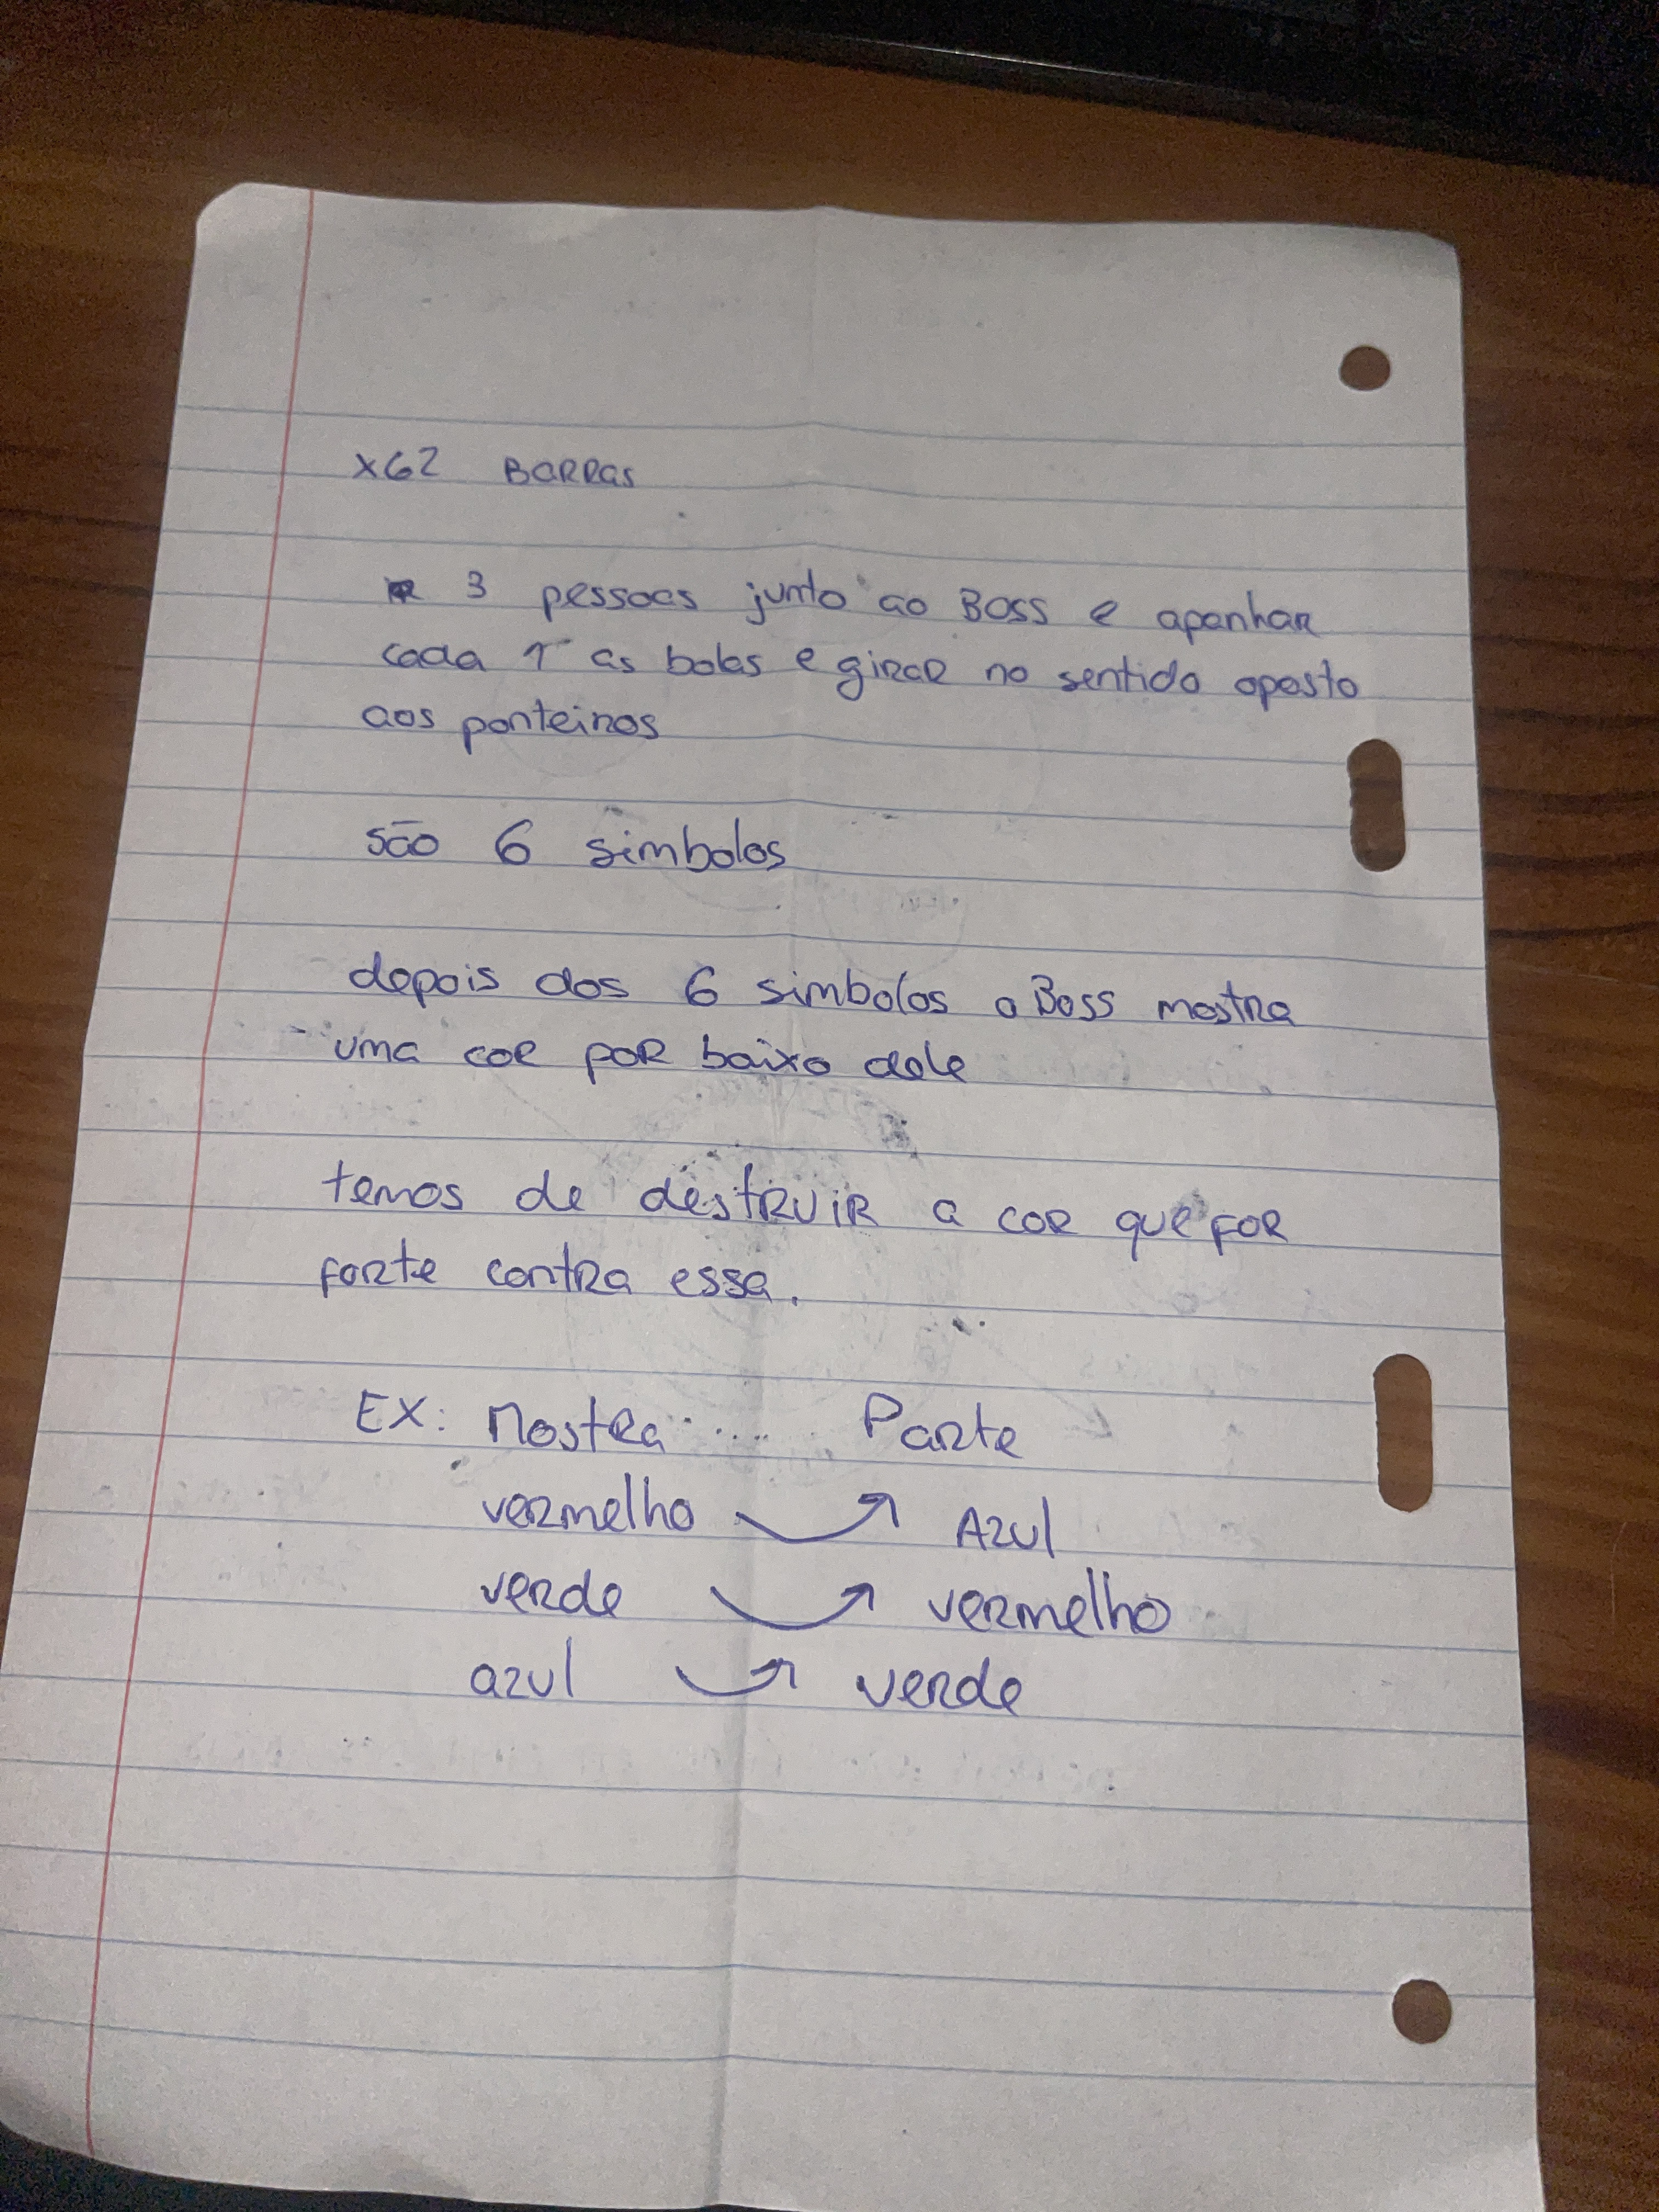 x62 BARRAS
3 pessoas junto ao Boss e apanhar
cada 1 as bolas e girar no sentido oposto
aos ponteiros
são 6 simbolos
depois dos 6 simbolos o Boss mostra
uma cor por baixo dele
temos de destruir a cor que for
forte contra essa.
EX: Mostra .... Parte
vermelho → Azul
verde → vermelho
azul → verde